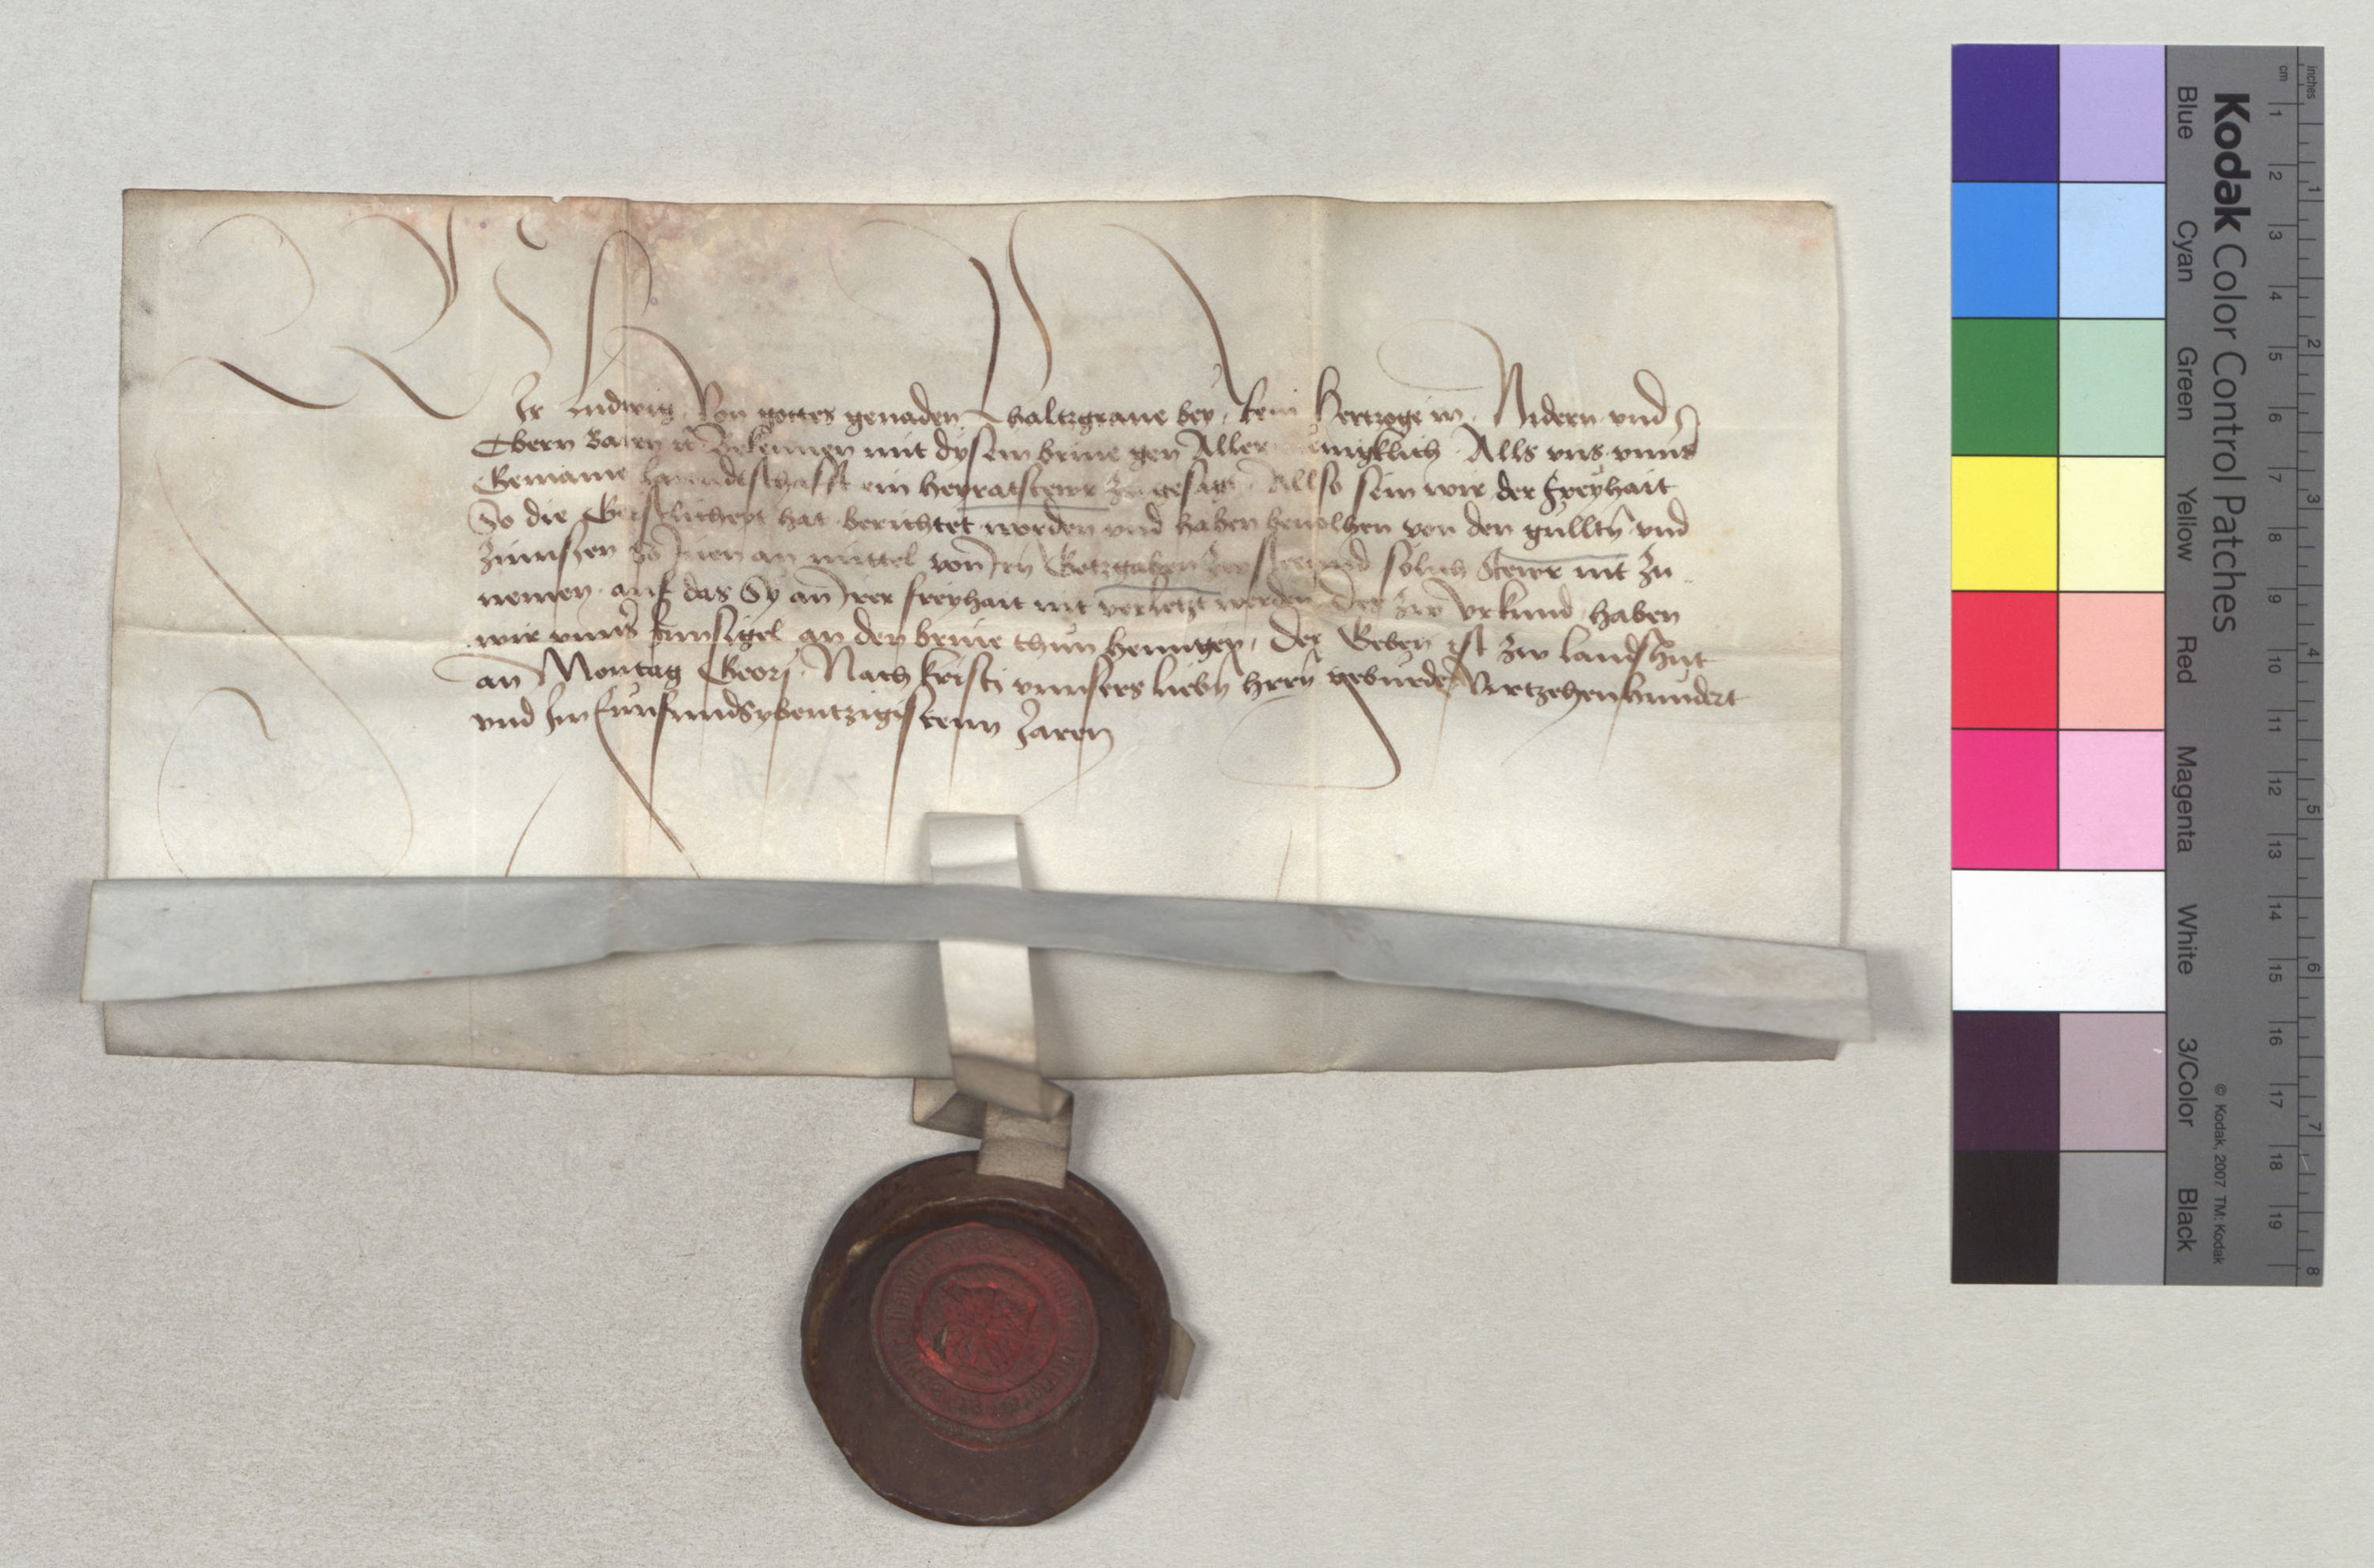 Wir Ludwig Von gottes genaden Phaltzgraue bey Rein Hertzoge in Nidern vnd
Obern Bairn ꝛc Bekennen mit dysem briue gen Aller Alls vns vnns̄
Gemaine lanndtschafft ein heyratstewr zu gesagt Allso sein wir der freyhait
So die Geistlicheyt hat berichtet worden vnd haben beuolhen von den gülltn̄ vnd
Zünnsen So Inen an mittel von Irn Gotzgaben solich Stewr nit zu
nemen auf das Sy an Irer freyhait nit verletzt werden Des zw Vrkund haben
wir vnns̄ Innsigel an den briue thun henngen, Der Geben ist zw landshut
an Montag Georj Nach kristi vnnsers liebn̄ hrrn̄ geburde Virtzehenhundert
vnd Im fünfundsybentzigistenn Jaren
Kodak Color Control Patches
Blue Cyan Green Yellow Red Magenta White 3/Color Black
© Kodak, 2007 TM: Kodak
inches 1 2 3 4 5 6 7 8
cm 1 2 3 4 5 6 7 8 9 10 11 12 13 14 15 16 17 18 19